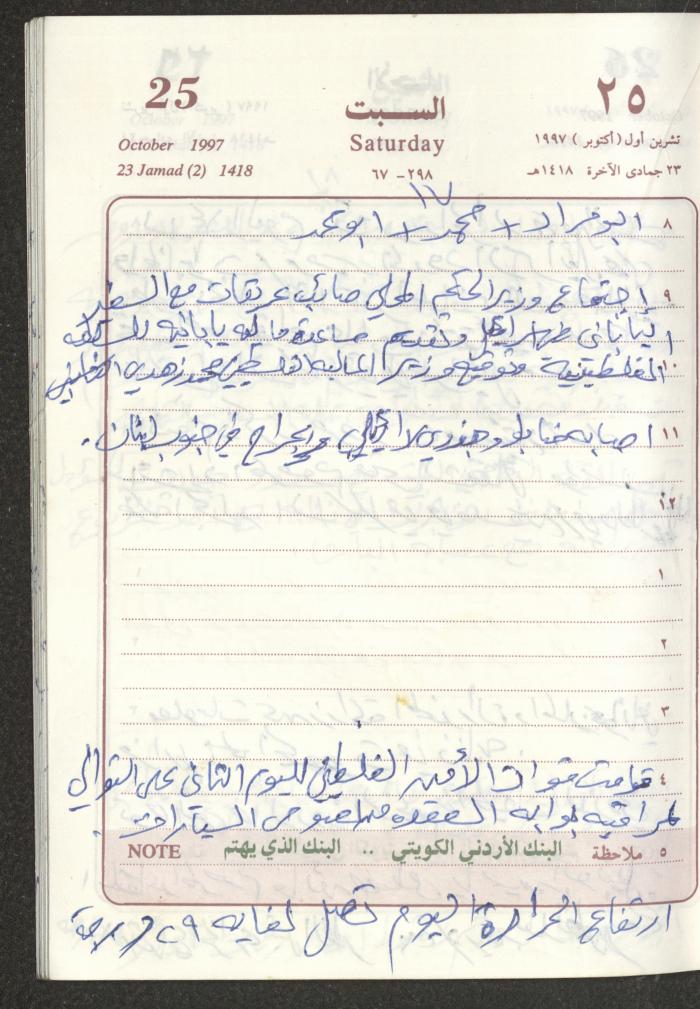 25 السبت ٢٥
October 1997 Saturday تشرين أول (أكتوبر) ١٩٩٧
23 Jamad (2) 1418 ٢٩٨ - ٦٧ ٢٣ جمادى الآخرة ١٤١٨هـ
١٧
٨ ابو مراد + محمد + ابو محمد
٩ إجتماع وزير الحكم المحلي صائب عريقات مع السفير
الياباني وتقديم مساعدة ماليه يابانيه للسلطه
١٠ الفلسطينية وتوقيع وزير الماليه الفلسطيني محمد زهدي النشاشيبي
١١ اصابه ضابط وجندي اسرائيلي بجراح في جنوب لبنان .
١٢
١
٢
٣
٤ قامت قوات الأمن الفلسطيني لليوم الثاني على التوالي
مراقبه بوابه السيارات .
٥ ملاحظة البنك الأردني الكويتي .. البنك الذي يهتم NOTE
ارتفاع الحرارة اليوم تصل لغايه ٢٩ درجة